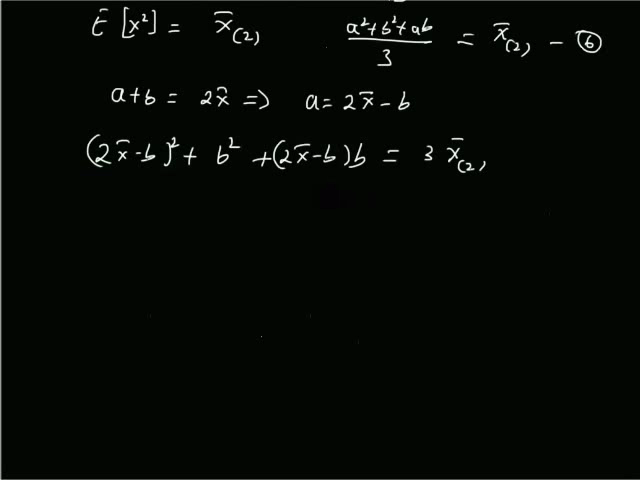 E [x²] = x̄₍₂₎ (a²+b²+ab)/3 = x̄₍₂₎ – ⑥
a+b = 2x̄ => a = 2x̄ – b
(2x̄-b)² + b² + (2x̄-b)b = 3 x̄₍₂₎